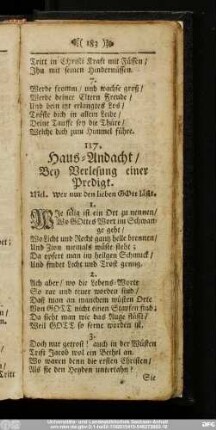 ( 183 )
Tritt in Christi Kraft mit Füssen/
Ihn mit seinen Hindernüssen.
7.
Werde fromm/ und wachse groß/
Werde deiner Eltern Freude/
Und dein itzt erlangtes Los/
Tröste dich in allem Leide/
Deine Tauffe sey die Thüre/
Welche dich zum Himmel führe.
117.
Haus-Andacht/
Bey Verlesung einer
Predigt.
Mel. Wer nur den lieben GOtt läst.
1.
WIe selig ist ein Ort zu nennen/
Wo GOttes Wort im Schwange
ge geht/
Wo Licht und Recht gantz helle brennen/
Und Zion niemals wüste steht;
Da opfert man im heilgen Schmuck/
Und findet Licht und Trost genug.
2.
Ach aber/ wo die Lebens-Worte
So rar und teuer worden sind/
Daß man an manchem wüsten Orte
Von GOTT nicht einen
Da sieht man wie das Auge
Weil GOTT so ferne worden ist.
3.
Doch nur getrost! auch in der Wüsten
Trift Jacob wol ein Bethel an.
Wo waren denn die ersten Christen/
Als sie den Heyden unterthan?
Sie